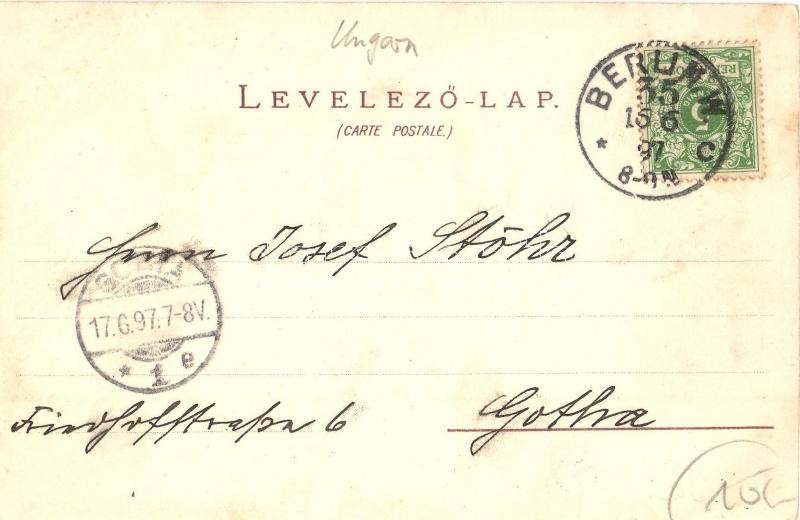 Ungarn
LEVELEZŐ-LAP.
(CARTE POSTALE.)
BERLIN N.
35
15 6
97
8-9N
C
5
Herrn Josef Stöhr
17.6.97.7-8V.
* 1 e
Friedhofstraße 6
Gotha
10.-